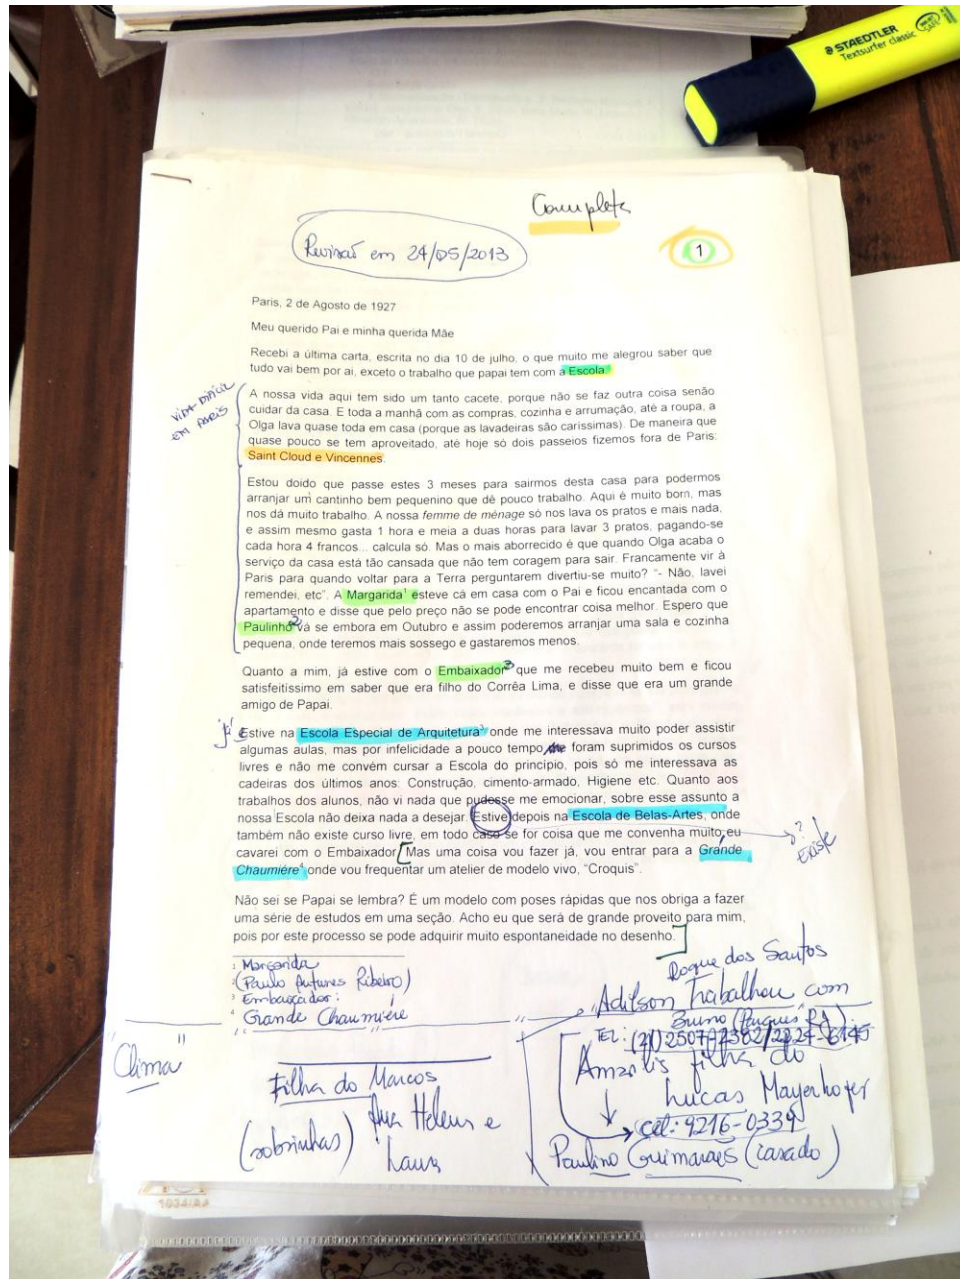 STAEDTLER
Textsurfer classic
Completa
Revisão em 24/05/2013
1
Paris, 2 de Agosto de 1927
Meu querido Pai e minha querida Mãe
Recebi a última carta, escrita no dia 10 de julho, o que muito me alegrou saber que
tudo vai bem por ai, exceto o trabalho que papai tem com a Escola.
VIDA DIFÍCIL
EM PARIS
A nossa vida aqui tem sido um tanto cacete, porque não se faz outra coisa senão
cuidar da casa. E toda a manhã com as compras, cozinha e arrumação, até a roupa, a
Olga lava quase toda em casa (porque as lavadeiras são caríssimas). De maneira que
quase pouco se tem aproveitado, até hoje só dois passeios fizemos fora de Paris:
Saint Cloud e Vincennes.
Estou doido que passe estes 3 meses para sairmos desta casa para podermos
arranjar um cantinho bem pequenino que dê pouco trabalho. Aqui é muito bom, mas
nos dá muito trabalho. A nossa femme de ménage só nos lava os pratos e mais nada,
e assim mesmo gasta 1 hora e meia a duas horas para lavar 3 pratos, pagando-se
cada hora 4 francos... calcula só. Mas o mais aborrecido é que quando Olga acaba o
serviço da casa está tão cansada que não tem coragem para sair. Francamente vir à
Paris para quando voltar para a Terra perguntarem divertiu-se muito? “- Não, lavei
remendei, etc”. A Margarida¹ esteve cá em casa com o Pai e ficou encantada com o
apartamento e disse que pelo preço não se pode encontrar coisa melhor. Espero que
Paulinho² vá se embora em Outubro e assim poderemos arranjar uma sala e cozinha
pequena, onde teremos mais sossego e gastaremos menos.
Quanto a mim, já estive com o Embaixador³ que me recebeu muito bem e ficou
satisfeitíssimo em saber que era filho do Corrêa Lima, e disse que era um grande
amigo de Papai.
já
Estive na Escola Especial de Arquitetura³ onde me interessava muito poder assistir
algumas aulas, mas por infelicidade a pouco tempo foram suprimidos os cursos
livres e não me convém cursar a Escola do princípio, pois só me interessava as
cadeiras dos últimos anos: Construção, cimento-armado, Higiene etc. Quanto aos
trabalhos dos alunos, não vi nada que pudesse me emocionar, sobre esse assunto a
nossa Escola não deixa nada a desejar. Estive depois na Escola de Belas-Artes, onde
também não existe curso livre, em todo caso se for coisa que me convenha muito, eu
cavarei com o Embaixador. Mas uma coisa vou fazer já, vou entrar para a Grande
Chaumiére⁴ onde vou frequentar um atelier de modelo vivo, “Croquis”.
? Existe
Não sei se Papai se lembra? É um modelo com poses rápidas que nos obriga a fazer
uma série de estudos em uma seção. Acho eu que será de grande proveito para mim,
pois por este processo se pode adquirir muito espontaneidade no desenho.
1 Margarida
2 (Paulo Antunes Ribeiro)
3 Embaixador:
4 Grande Chaumiére
Roque dos Santos
Adilson Trabalhou com
Bruno (Parques RJ)
TEL: (21) 2507-2382/2224-6145
Amarilis filha do
Lucas Mayerhofer
cel: 9216-0339
Paulino Guimarães (casado)
"Clima"
Filha do Marcos
Ana Helena e
(sobrinhas) Laura
1034/AA